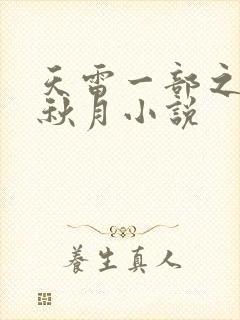 天雷一部之
秋月小説
養生真人